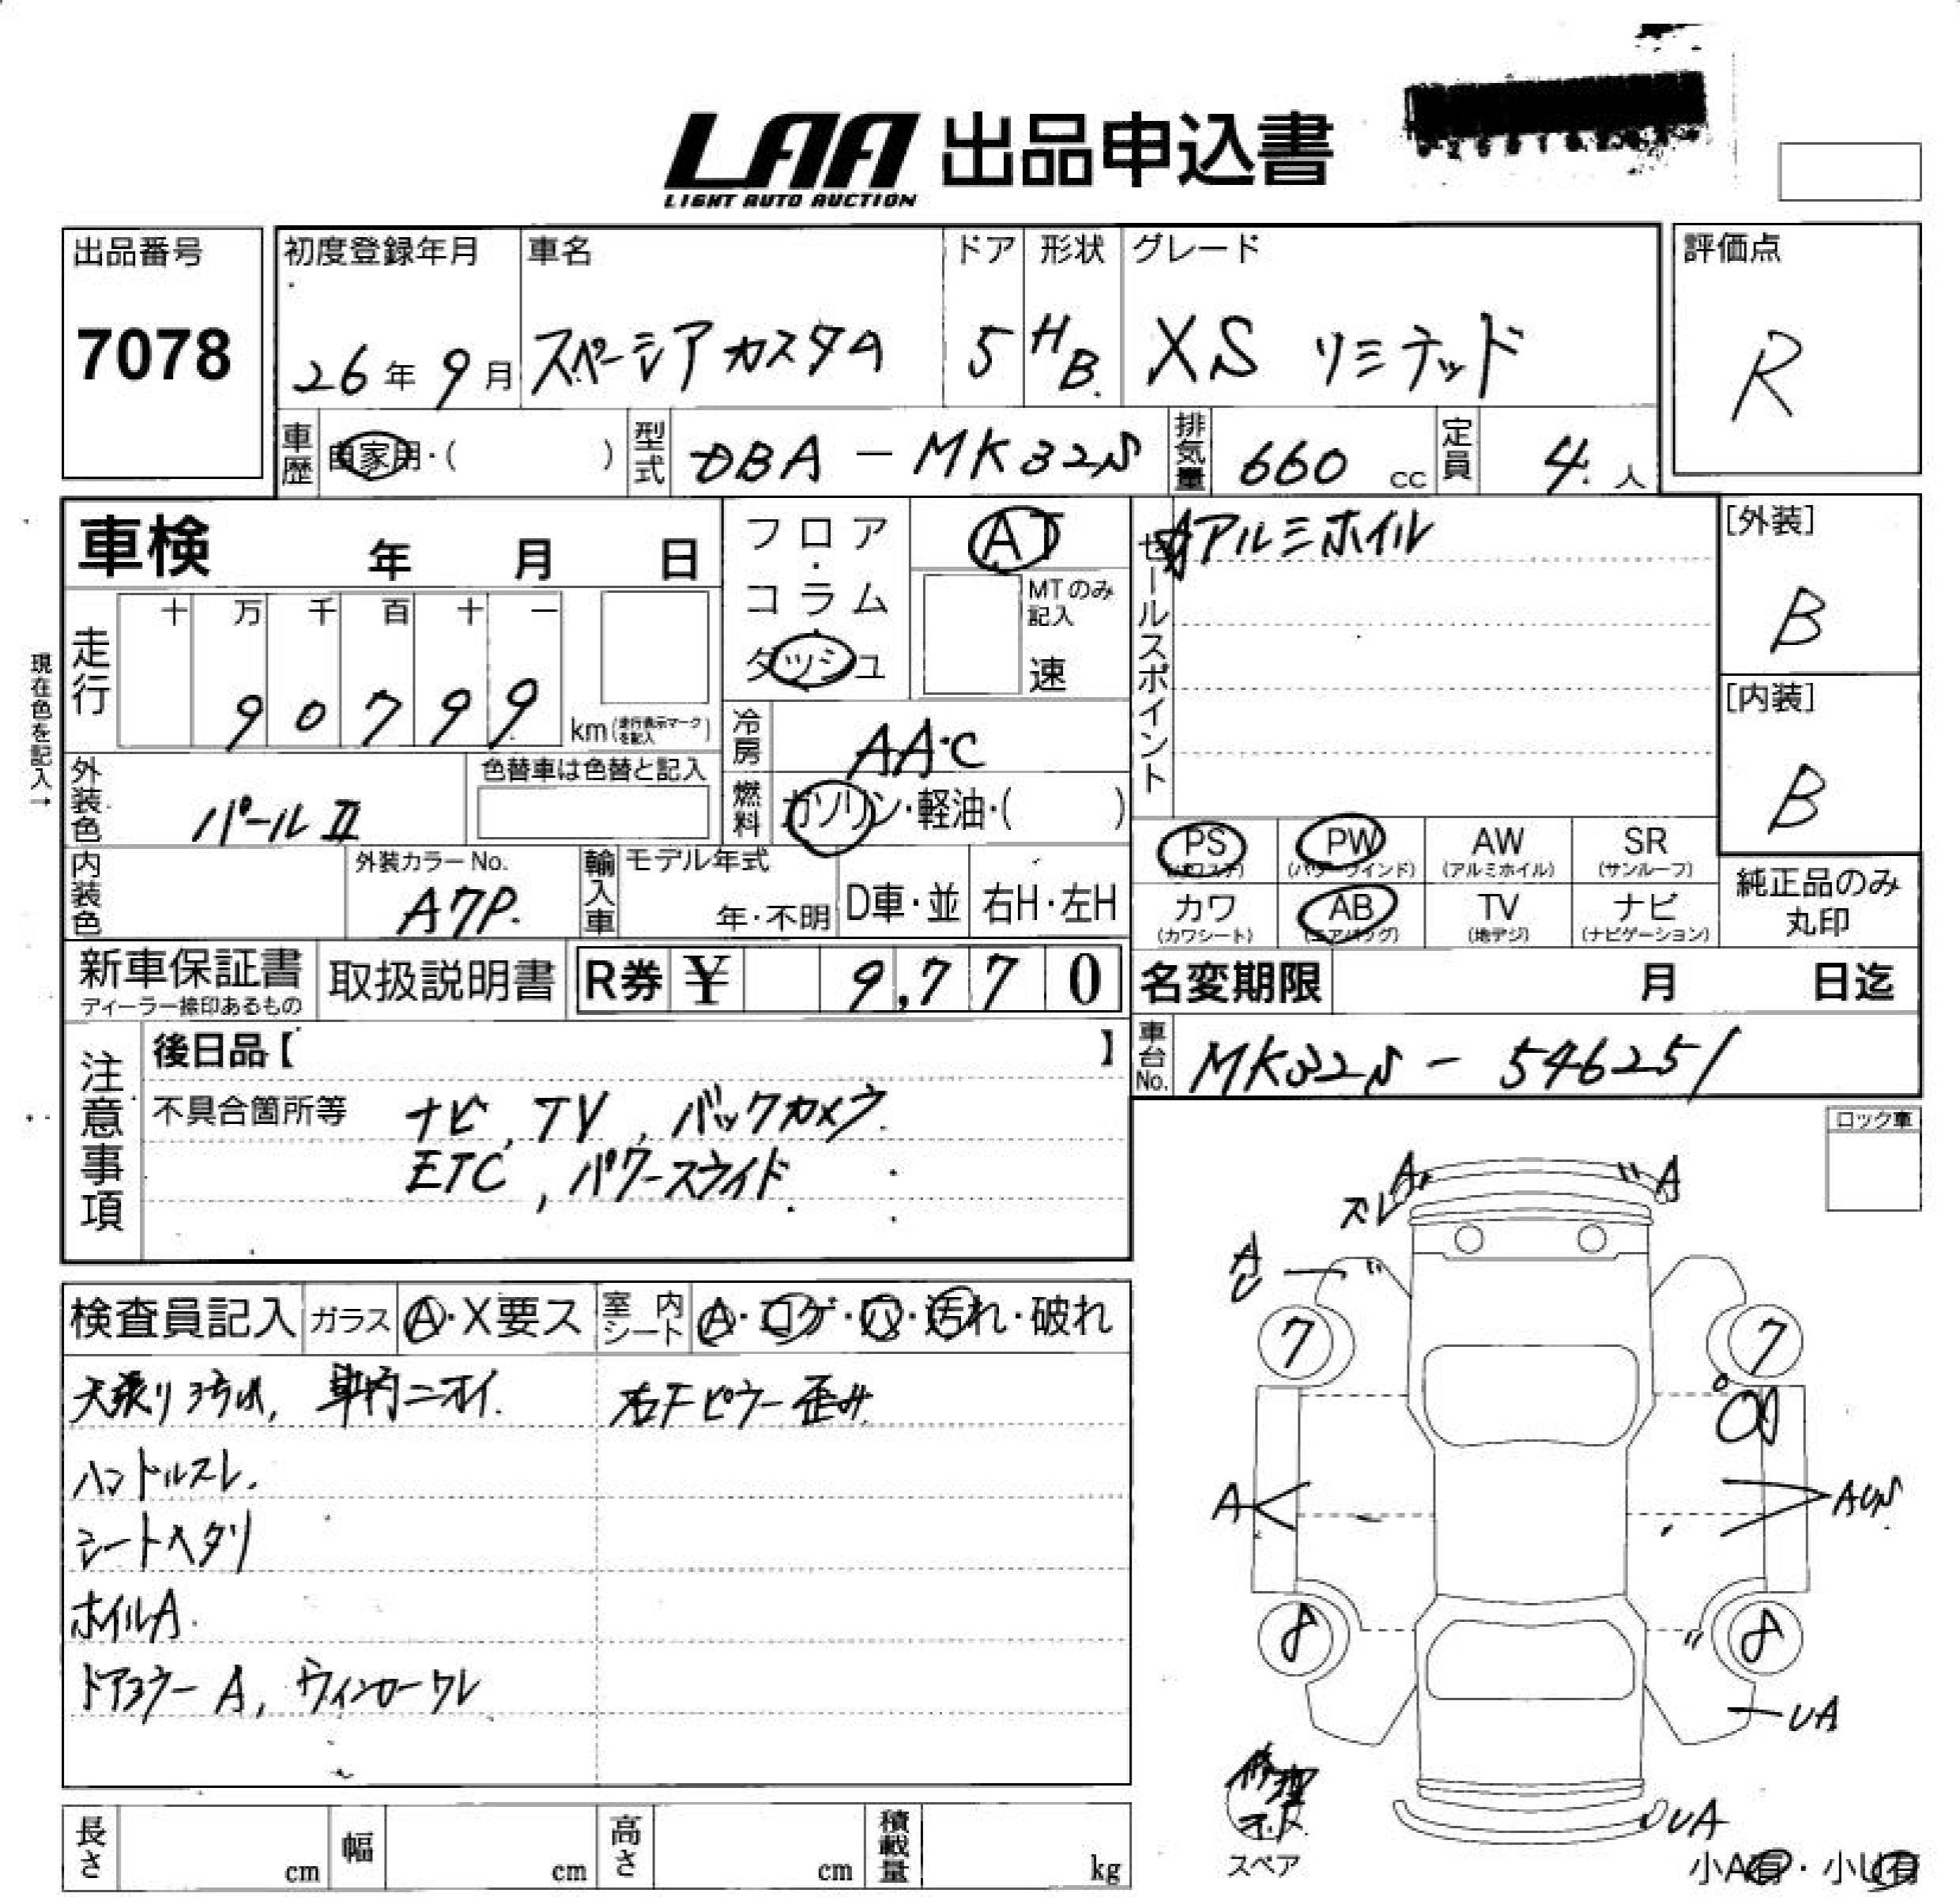 LAA 出品申込書
LIGHT AUTO AUCTION
出品番号
7078
初度登録年月
26年 9月
車名
スペーシアカスタム
ドア
5
形状
HB.
グレード
XS リミテッド
評価点
R
車歴
自家用・( )
型式
DBA - MK32S
排気量
660 cc
定員
4. 人
車検 年 月 日
フロア・コラム・ダッシュ
AT
MTのみ記入
速
セールスポイント
アルミホイル
[外装]
B
[内装]
B
現在色を記入→
走行
十 万 千 百 十 一
9 0 7 9 9
km (走行表示マークを記入)
冷房
AAC
燃料
ガソリン・軽油・( )
外装色
パールⅡ
色替車は色替と記入
内装色
外装カラーNo.
A7P.
輸入車
モデル年式
年・不明
D車・並
右H・左H
PS (パワステ)
PW (パワーウインド)
AW (アルミホイル)
SR (サンルーフ)
カワ (カワシート)
AB (エアバッグ)
TV (地デジ)
ナビ (ナビゲーション)
純正品のみ丸印
新車保証書
ディーラー捺印あるもの
取扱説明書
R券 ¥ 9,770
名変期限 月 日迄
車台No.
MK32S - 546251
注意事項
後日品【 】
不具合箇所等
ナビ, TV, バックカメラ.
ETC, パワースライド
ロック車
検査員記入
ガラス
A・X要ス
室内シート
A・コゲ・穴・汚れ・破れ
天張りヨゴレ, 車内ニオイ.
右Fピラー歪み
ハンドルスレ.
シートヘタリ
ホイルA.
ドアミラーA, ウィンカーワレ
A
A
スレ
A
U
7
7
A
8
8
UA
UA
修理
スペア
小A有・小U有
長さ cm
幅 cm
高さ cm
積載量 kg